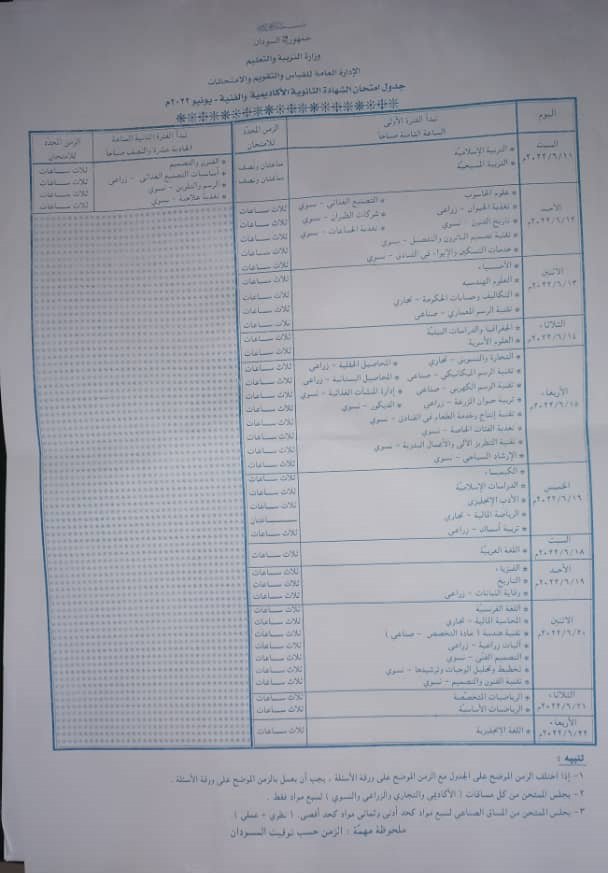 جمهورية السودان
وزارة التربية والتعليم
الإدارة العامة للقياس والتقويم والامتحانات
جدول امتحان الشهادة الثانوية الأكاديمية والفنية - يونيو ٢٠٢٢م
اليوم
تبدأ الفترة الأولى
الساعة الثامنة صباحاً
الزمن المحدد
للامتحان
تبدأ الفترة الثانية الساعة
الحادية عشرة والنصف صباحاً
الزمن المحدد
للامتحان
السبت
٢٠٢٢/٦/١١م
* التربية الإسلامية
* التربية المسيحية
ساعتان ونصف
ساعتان ونصف
* الفنون والتصميم
* أساسيات التصنيع الغذائي - زراعي
* الرسم والتلوين - نسوي
* تغذية علاجية - نسوي
ثلاث ساعات
ثلاث ساعات
ثلاث ساعات
ثلاث ساعات
الأحد
٢٠٢٢/٦/١٢م
* علوم الحاسوب
* التصنيع الغذائي - نسوي
* تغذية الحيوان - زراعي
* شركات الطيران - نسوي
* تاريخ الفنون - نسوي
* تغذية الجماعات - نسوي
* تقنية تصميم الباترون والتفصيل - نسوي
* خدمات التسكين والإيواء في الفنادق - نسوي
ثلاث ساعات
ثلاث ساعات
ثلاث ساعات
ثلاث ساعات
ثلاث ساعات
الاثنين
٢٠٢٢/٦/١٣م
* الأحياء
* العلوم الهندسية
* التكاليف وحسابات الحكومة - تجاري
* تقنية الرسم المعماري - صناعي
ثلاث ساعات
ثلاث ساعات
ثلاث ساعات
ثلاث ساعات
الثلاثاء
٢٠٢٢/٦/١٤م
* الجغرافيا والدراسات البيئية
* العلوم الأسرية
ثلاث ساعات
ثلاث ساعات
الأربعاء
٢٠٢٢/٦/١٥م
* التجارة والتسويق - تجاري
* المحاصيل الحقلية - زراعي
* تقنية الرسم الميكانيكي - صناعي
* المحاصيل البستانية - زراعي
* تقنية الرسم الكهربي - صناعي
* إدارة المنشآت الغذائية - نسوي
* تربية حيوان المزرعة - زراعي
* الديكور - نسوي
* تقنية إنتاج وخدمة الطعام في الفنادق - نسوي
* تغذية الفئات الخاصة - نسوي
* تقنية التطريز الآلي والأعمال اليدوية - نسوي
* الإرشاد السياحي - نسوي
ثلاث ساعات
ثلاث ساعات
ثلاث ساعات
ثلاث ساعات
ثلاث ساعات
ثلاث ساعات
ثلاث ساعات
ثلاث ساعات
الخميس
٢٠٢٢/٦/١٦م
* الكيمياء
* الدراسات الإسلامية
* الأدب الإنجليزي
* الرياضة المالية - تجاري
* تربية أسماك - زراعي
ثلاث ساعات
ثلاث ساعات
ثلاث ساعات
ساعتان
ثلاث ساعات
السبت
٢٠٢٢/٦/١٨م
* اللغة العربية
ثلاث ساعات
الأحد
٢٠٢٢/٦/١٩م
* الفيزياء
* التاريخ
* وقاية النباتات - زراعي
ثلاث ساعات
ثلاث ساعات
ثلاث ساعات
الاثنين
٢٠٢٢/٦/٢٠م
* اللغة الفرنسية
* المحاسبة المالية - تجاري
* تقنية هندسية ( مادة التخصص - صناعي )
* آليات زراعية - زراعي
* التصميم الفني - نسوي
* تخطيط وتحليل الوجبات وترشيدها - نسوي
* تقنية الفنون والتصميم - نسوي
ثلاث ساعات
ثلاث ساعات
ثلاث ساعات
ثلاث ساعات
ثلاث ساعات
ثلاث ساعات
ثلاث ساعات
الثلاثاء
٢٠٢٢/٦/٢١م
* الرياضيات المتخصصة
* الرياضيات الأساسية
ثلاث ساعات
ثلاث ساعات
الأربعاء
٢٠٢٢/٦/٢٢م
* اللغة الإنجليزية
ثلاث ساعات
تنبيه :
١- إذا اختلف الزمن الموضح على الجدول مع الزمن الموضح على ورقة الأسئلة ، يجب أن يعمل بالزمن الموضح على ورقة الأسئلة .
٢- يجلس الممتحن من كل مساقات ( الأكاديمي والتجاري والزراعي والنسوي ) لسبع مواد فقط .
٣- يجلس الممتحن من المساق الصناعي لسبع مواد كحد أدنى وثماني مواد كحد أقصى. ( نظري + عملي )
ملحوظة مهمة : الزمن حسب توقيت السودان